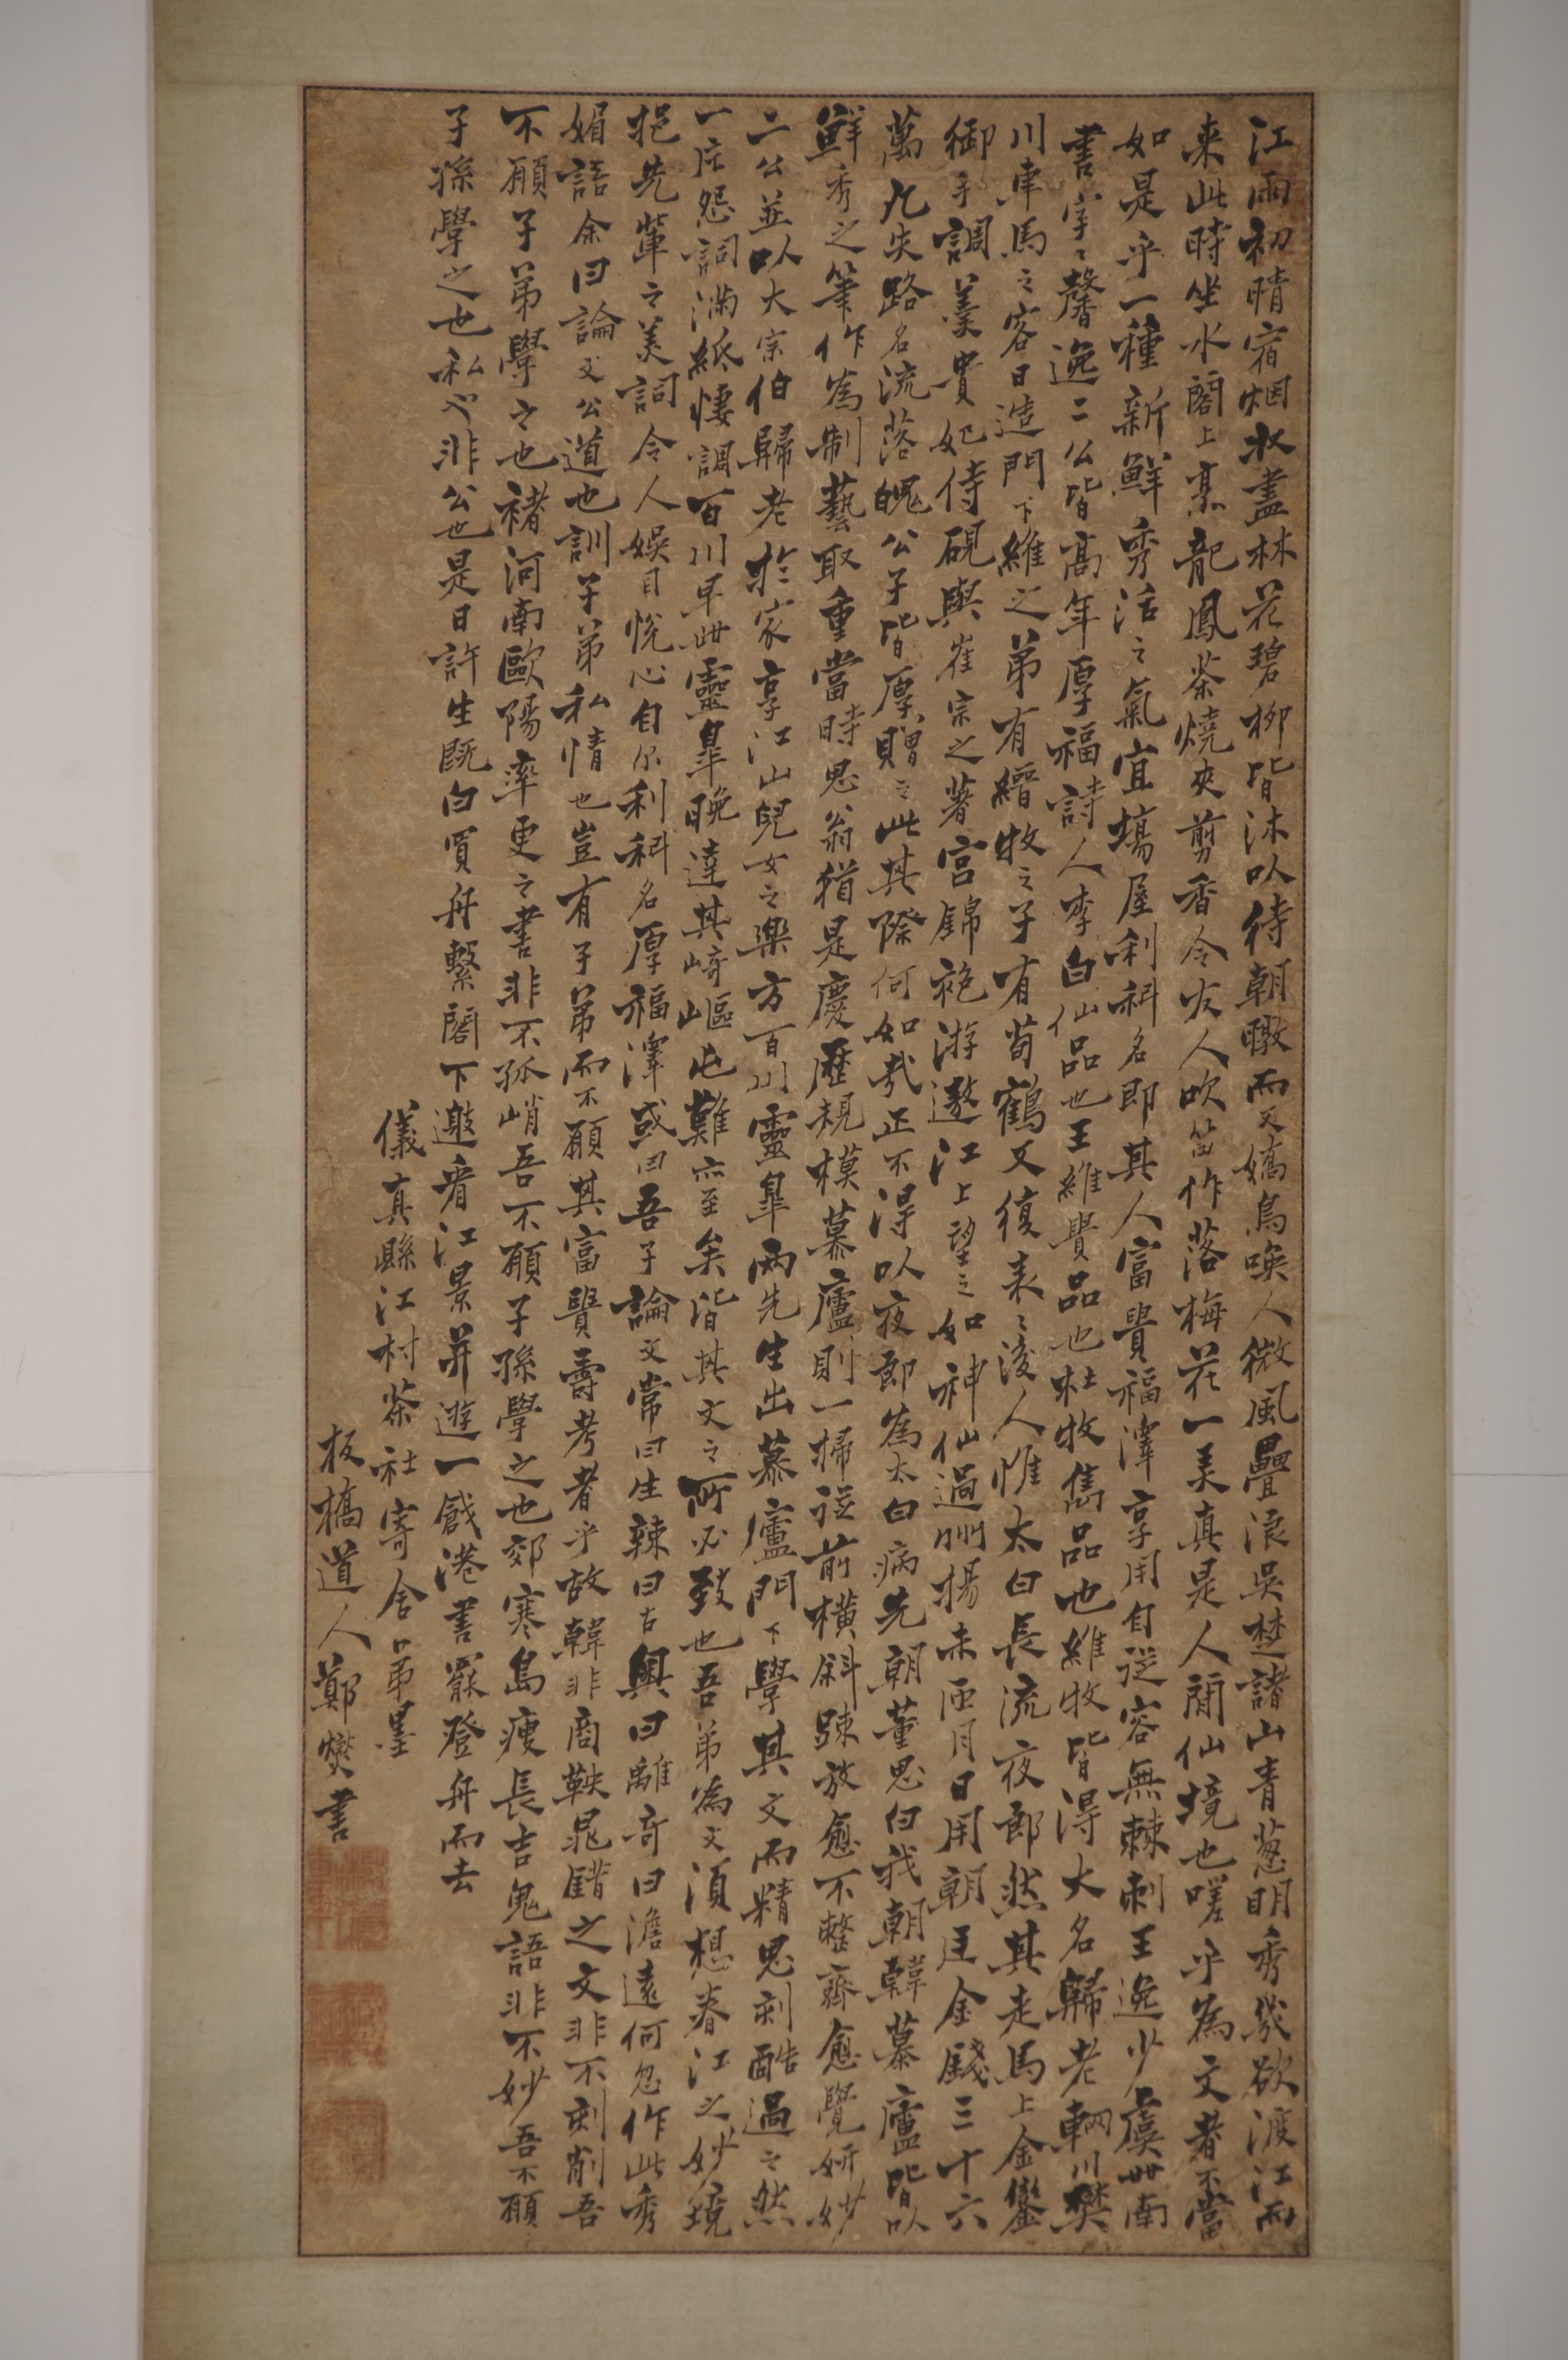 江雨初晴宿烟收盡林花碧柳皆沐以待朝暾而又嬌鳥喚人微風疊浪吳楚諸山青葱明秀幾欲渡江而
来此時坐水閣上烹龍鳳茶燒夾剪香令友人吹笛作落梅花一美真是人間仙境也嗟乎為文者不當
如是乎一種新鮮秀活之氣宜塲屋利科名即其人富貴福澤享用自從容無棘刺王逸少虞世南
書字字馨逸二公皆高年厚福詩人李白仙品也王維貴品也杜牧雋品也維牧皆得大名歸老輞川樊
川車馬之客日造門下維之弟有縉牧之子有荀鶴又復表表後人惟太白長流夜郎然其走馬上金鑾
御手調羹貴妃侍硯與崔宗之著宮錦袍游遨江上望之如神仙過揚州未匝月日用朝廷金錢三十六
萬凡失路名流落魄公子皆厚贈之此其際何如哉正不得以夜郎為太白病先朝董思白我朝韓慕廬皆以
鮮秀之筆作為制藝取重當時思翁猶是慶歷規模慕廬則一掃從前橫斜踈放愈不整齊愈覺妍妙
二公並以大宗伯歸老於家享江山兒女之樂方百川靈皐兩先生出慕廬門下學其文而精思刻酷過之然
一片怨詞滿紙悽調百川早世靈皐晚達其崎嶇屯難亦至矣皆其文之所必致也吾弟為文須想春江之妙境
挹先輩之美詞令人娛目悅心自尔利科名厚福澤或曰吾子論文常曰生辣曰古奧曰離奇曰澹遠何忽作此秀
媚語余曰論文公道也訓子弟私情也豈有子弟而不願其富貴壽考者乎故韓非商鞅晁錯之文非不刻削吾
不願子弟學之也褚河南歐陽率更之書非不孤峭吾不願子孫學之也郊寒島瘦長吉鬼語非不妙吾不願
子孫學之也私也非公也是日許生既白買舟繫閣下邀看江景并遊一戧港書罷登舟而去
儀真縣江村茶社寄舍弟墨
板橋道人鄭燮書